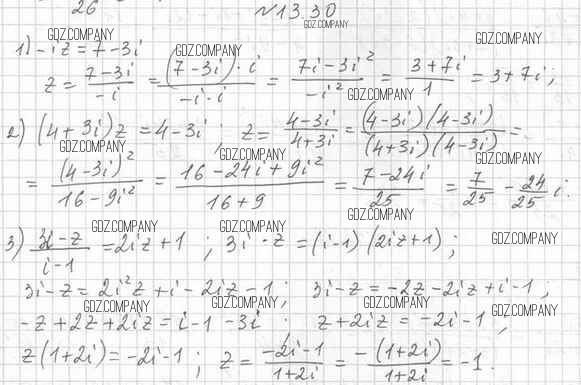 26 №13.30
GDZ.COMPANY
GDZ.COMPANY GDZ.COMPANY GDZ.COMPANY
1) -iz = 7-3i
z = \frac{7-3i}{-i} = \frac{(7-3i)·i}{-i·i} = \frac{7i-3i^2}{-i^2} = \frac{3+7i}{1} = 3+7i;
GDZ.COMPANY GDZ.COMPANY
2) (4+3i)z = 4-3i; z = \frac{4-3i}{4+3i} = \frac{(4-3i)(4-3i)}{(4+3i)(4-3i)} =
GDZ.COMPANY GDZ.COMPANY GDZ.COMPANY
= \frac{(4-3i)^2}{16-9i^2} = \frac{16-24i+9i^2}{16+9} = \frac{7-24i}{25} = \frac{7}{25} - \frac{24}{25}i.
GDZ.COMPANY GDZ.COMPANY GDZ.COMPANY GDZ.COMPANY
3) \frac{3i-z}{i-1} = 2iz+1; 3i-z = (i-1)(2iz+1);
3i-z = 2i^2z+i-2iz-1; 3i-z = -2z-2iz+i-1;
GDZ.COMPANY GDZ.COMPANY GDZ.COMPANY GDZ.COMPANY
-z+2z+2iz = i-1-3i; z+2iz = -2i-1;
z(1+2i) = -2i-1; z = \frac{-2i-1}{1+2i} = \frac{-(1+2i)}{1+2i} = -1.